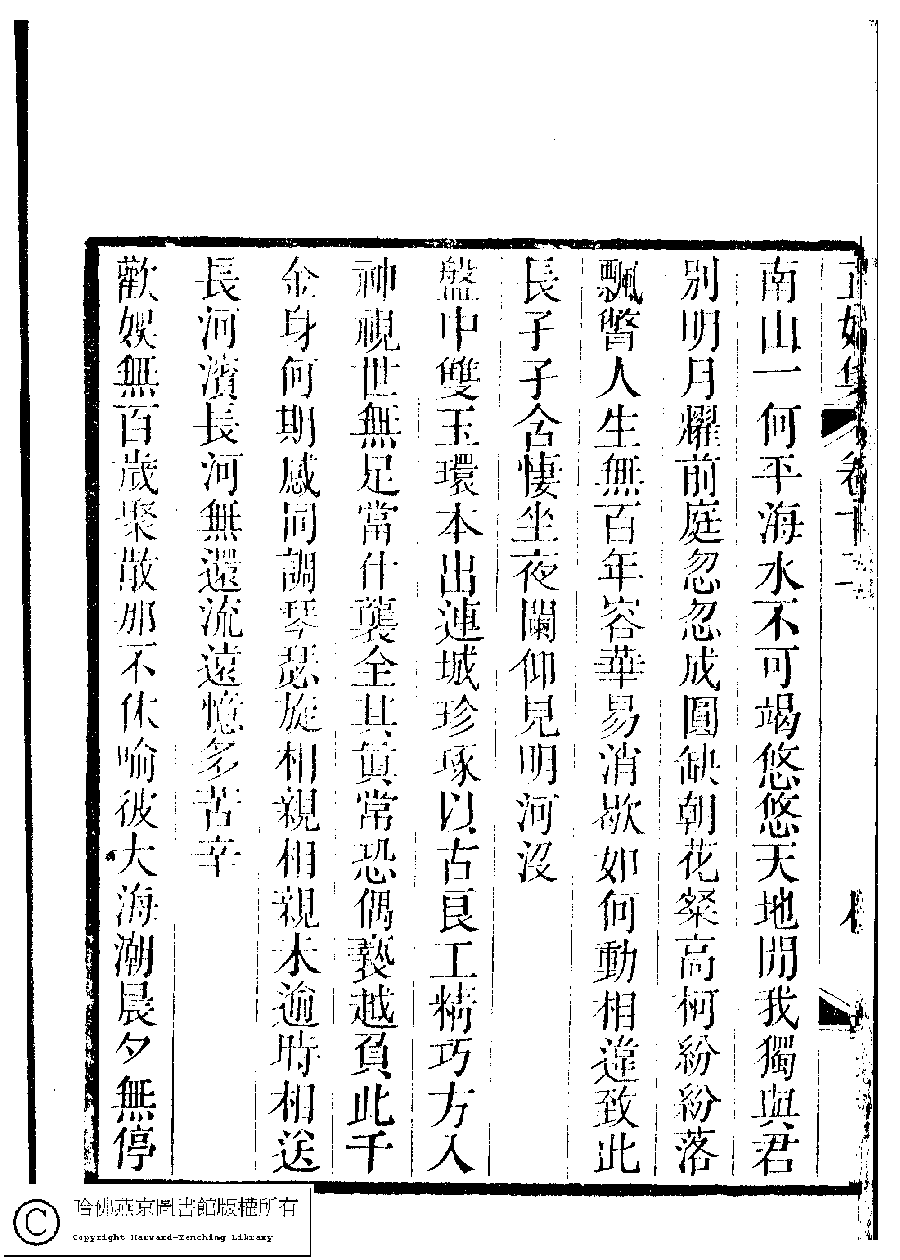 正始集 卷十二
南山一何平海水不可竭悠悠天地間我獨與君
別明月耀前庭忽忽成圓缺朝花粲高柯紛紛落
飄瞥人生無百年容華易消歇如何動相違致此
長孑孑含悽坐夜闌仰見明河沒
盤中雙玉環本出連城珍琢以古良工精巧方入
神視世無足當什襲全其真常恐偶褻越負此千
金身何期感同調琴瑟旋相親相親未逾時相送
長河濱長河無還流遠憶多苦辛
歡娛無百歲聚散那不休喻彼大海潮晨夕無停
哈佛燕京圖書館版權所有
Copyright Harvard-Yenching Library